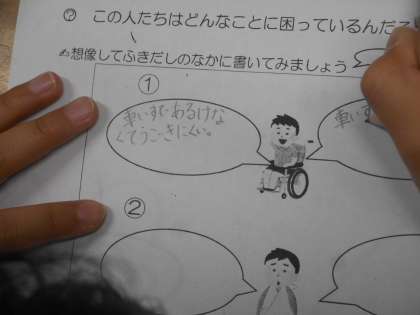 ② この人たちはどんなことに困っているんだろ
想像してふきだしのなかに書いてみましょう
①
車いすであるけな
くてうごきにくい。
車いす
②